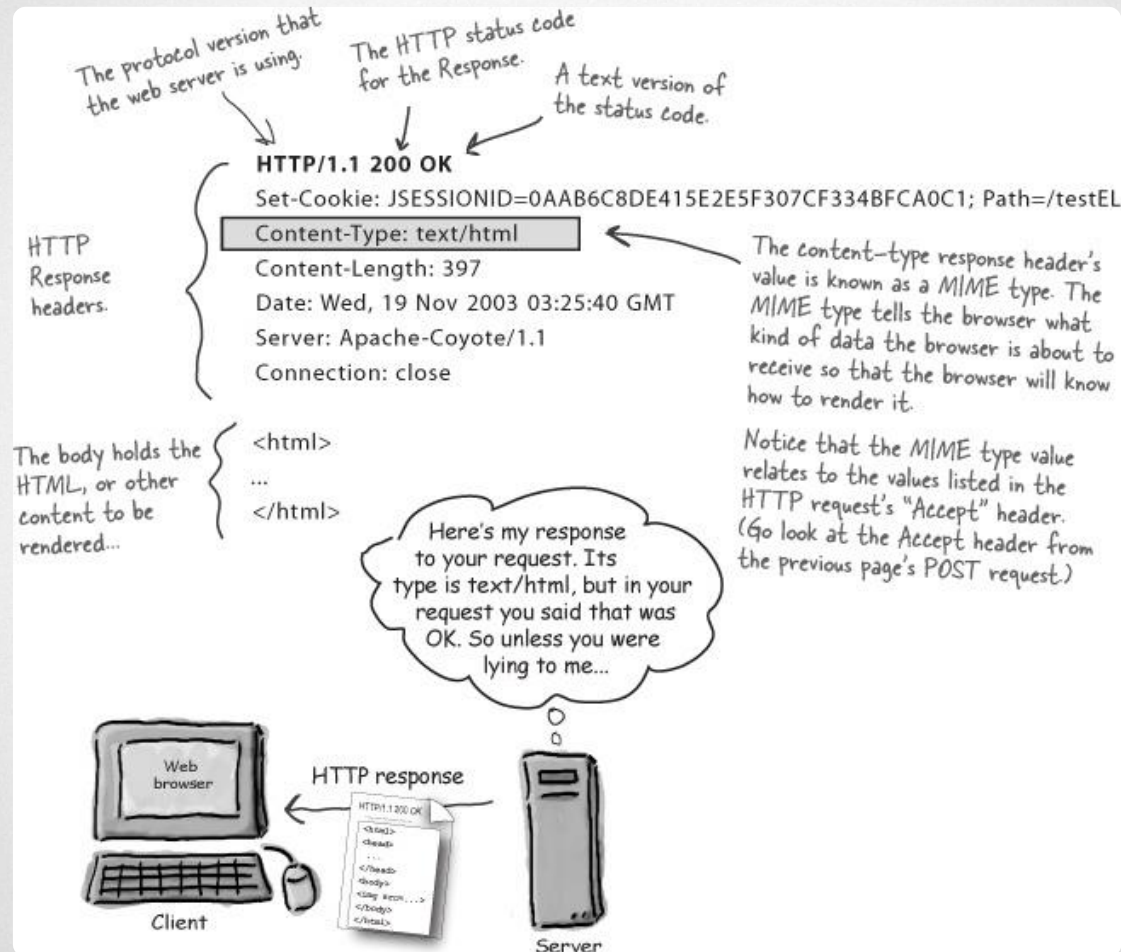 The protocol version that
the web server is using.
The HTTP status code
for the Response.
A text version of
the status code.
HTTP/1.1 200 OK
Set-Cookie: JSESSIONID=0AAB6C8DE415E2E5F307CF334BFCA0C1; Path=/testEL
Content-Type: text/html
Content-Length: 397
Date: Wed, 19 Nov 2003 03:25:40 GMT
Server: Apache-Coyote/1.1
Connection: close
HTTP
Response
headers.
The content-type response header's
value is known as a MIME type. The
MIME type tells the browser what
kind of data the browser is about to
receive so that the browser will know
how to render it.
Notice that the MIME type value
relates to the values listed in the
HTTP request's "Accept" header.
(Go look at the Accept header from
the previous page's POST request.)
The body holds the
HTML, or other
content to be
rendered...
<html>
...
</html>
Here's my response
to your request. Its
type is text/html, but in your
request you said that was
OK. So unless you were
lying to me...
Web
browser
HTTP response
HTTP/1.1 200 OK
<html>
<head>
...
</head>
<body>
<img
</body>
</html>
Client
Server